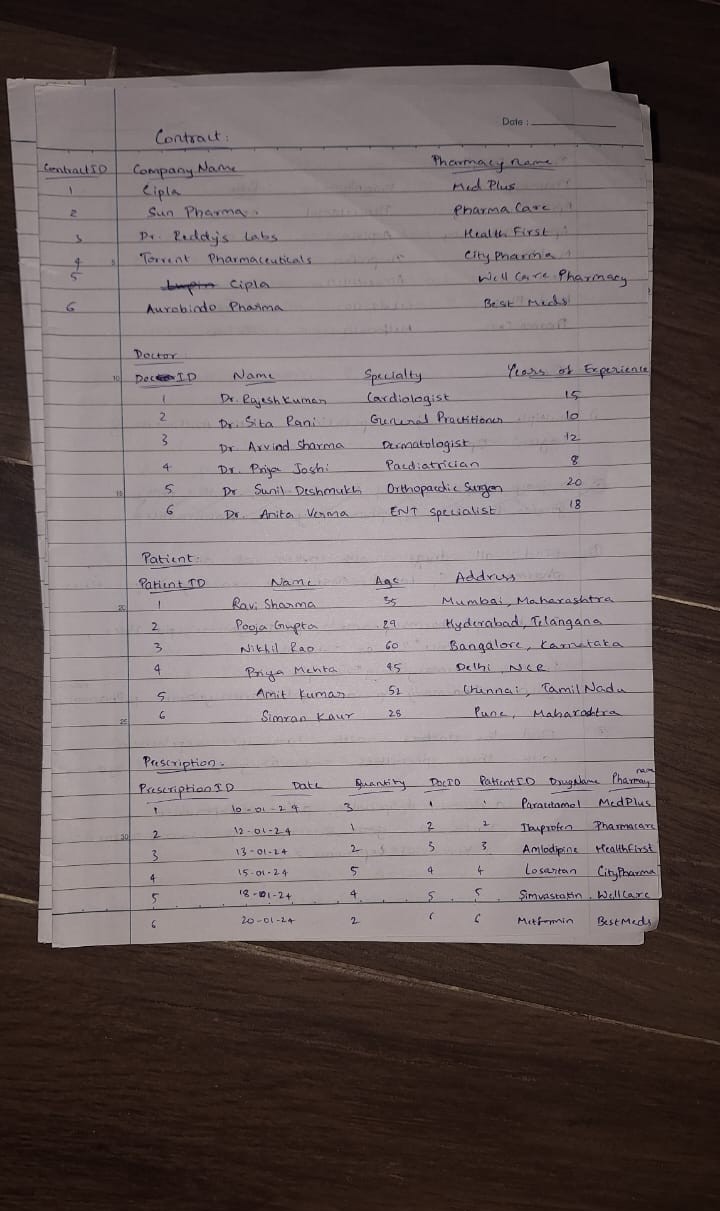 Date :
Contract :
ContractID Company Name Pharmacy name
1 Cipla Med Plus
2 Sun Pharma Pharma Care
3 Dr. Reddy's Labs Health First
4 Torrent Pharmaceuticals City Pharma
5 Cipla Well Care Pharmacy
6 Aurobindo Pharma Best Meds
Doctor
10 Doc ID Name Specialty Years of Experience
1 Dr. Rajesh Kumar Cardiologist 15
2 Dr. Sita Rani General Practitioner 10
3 Dr Arvind Sharma Dermatologist 12
4 Dr. Priya Joshi Paediatrician 8
15 5 Dr Sunil Deshmukh Orthopaedic Surgen 20
6 Dr. Anita Verma ENT Specialist 18
Patient :
Patient ID Name Age Address
20 1 Ravi Sharma 35 Mumbai, Maharashtra
2 Pooja Gupta 29 Hyderabad, Telangana
3 Nikhil Rao 60 Bangalore, Karnataka
4 Priya Mehta 45 Delhi, NCR
5 Amit Kumar 52 Chennai, Tamil Nadu
25 6 Simran Kaur 28 Pune, Maharashtra
Prescription :
Prescription ID Date Quantity DocID PatientID DrugName Pharmacy name
1 10-01-24 3 1 1 Paracetamol MedPlus
30 2 12-01-24 1 2 2 Ibuprofen Pharmacare
3 13-01-24 2 3 3 Amlodipine HealthFirst
4 15-01-24 5 4 4 Losartan CityPharma
5 18-01-24 4 5 5 Simvastatin WellCare
6 20-01-24 2 6 6 Metformin BestMeds